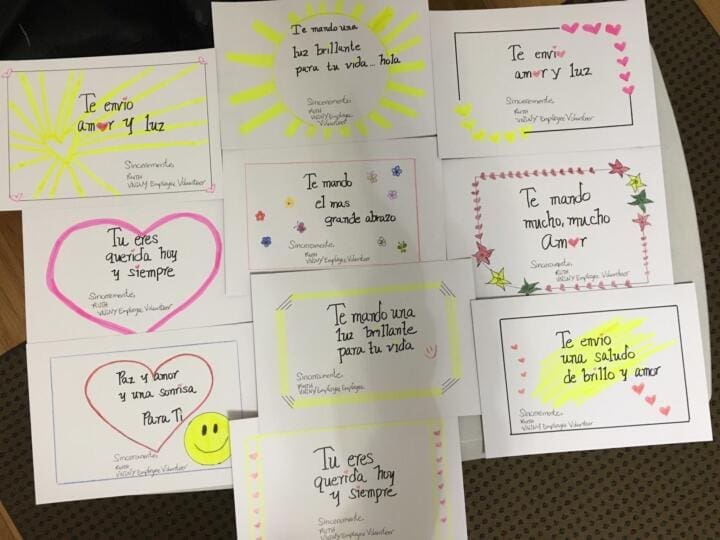 Te envio
amor y luz
Sinceremente,
RUTH
VNSNY Employee Volunteer
Te mando una
luz brillante
para tu vida... hola
Sinceremente,
RUTH
VNSNY Employee
Volunteer
Te envio
amor y luz
Sinceremente,
RUTH
VNSNY Employee Volunteer
Tu eres
querida hoy
y siempre
Sinceremente,
RUTH
VNSNY Employee Volunteer
Te mando
el mas
grande abrazo
Sinceremente,
RUTH
VNSNY Employee Volunteer
Te mando
mucho, mucho
Amor
Sinceremente,
RUTH
VNSNY Employee Volunteer
Paz y amor
y una sonrisa
Para Ti
Sinceremente,
RUTH
VNSNY Employee Volunteer
Te mando una
luz brillante
para tu vida
Sinceremente,
RUTH
VNSNY Employee Employee
Te envio
una saludo
de brillo y amor
Sinceremente,
RUTH
VNSNY Employee Volunteer
Tu eres
querida hoy
y siempre
Sinceremente,
RUTH
VNSNY Employee Volunteer